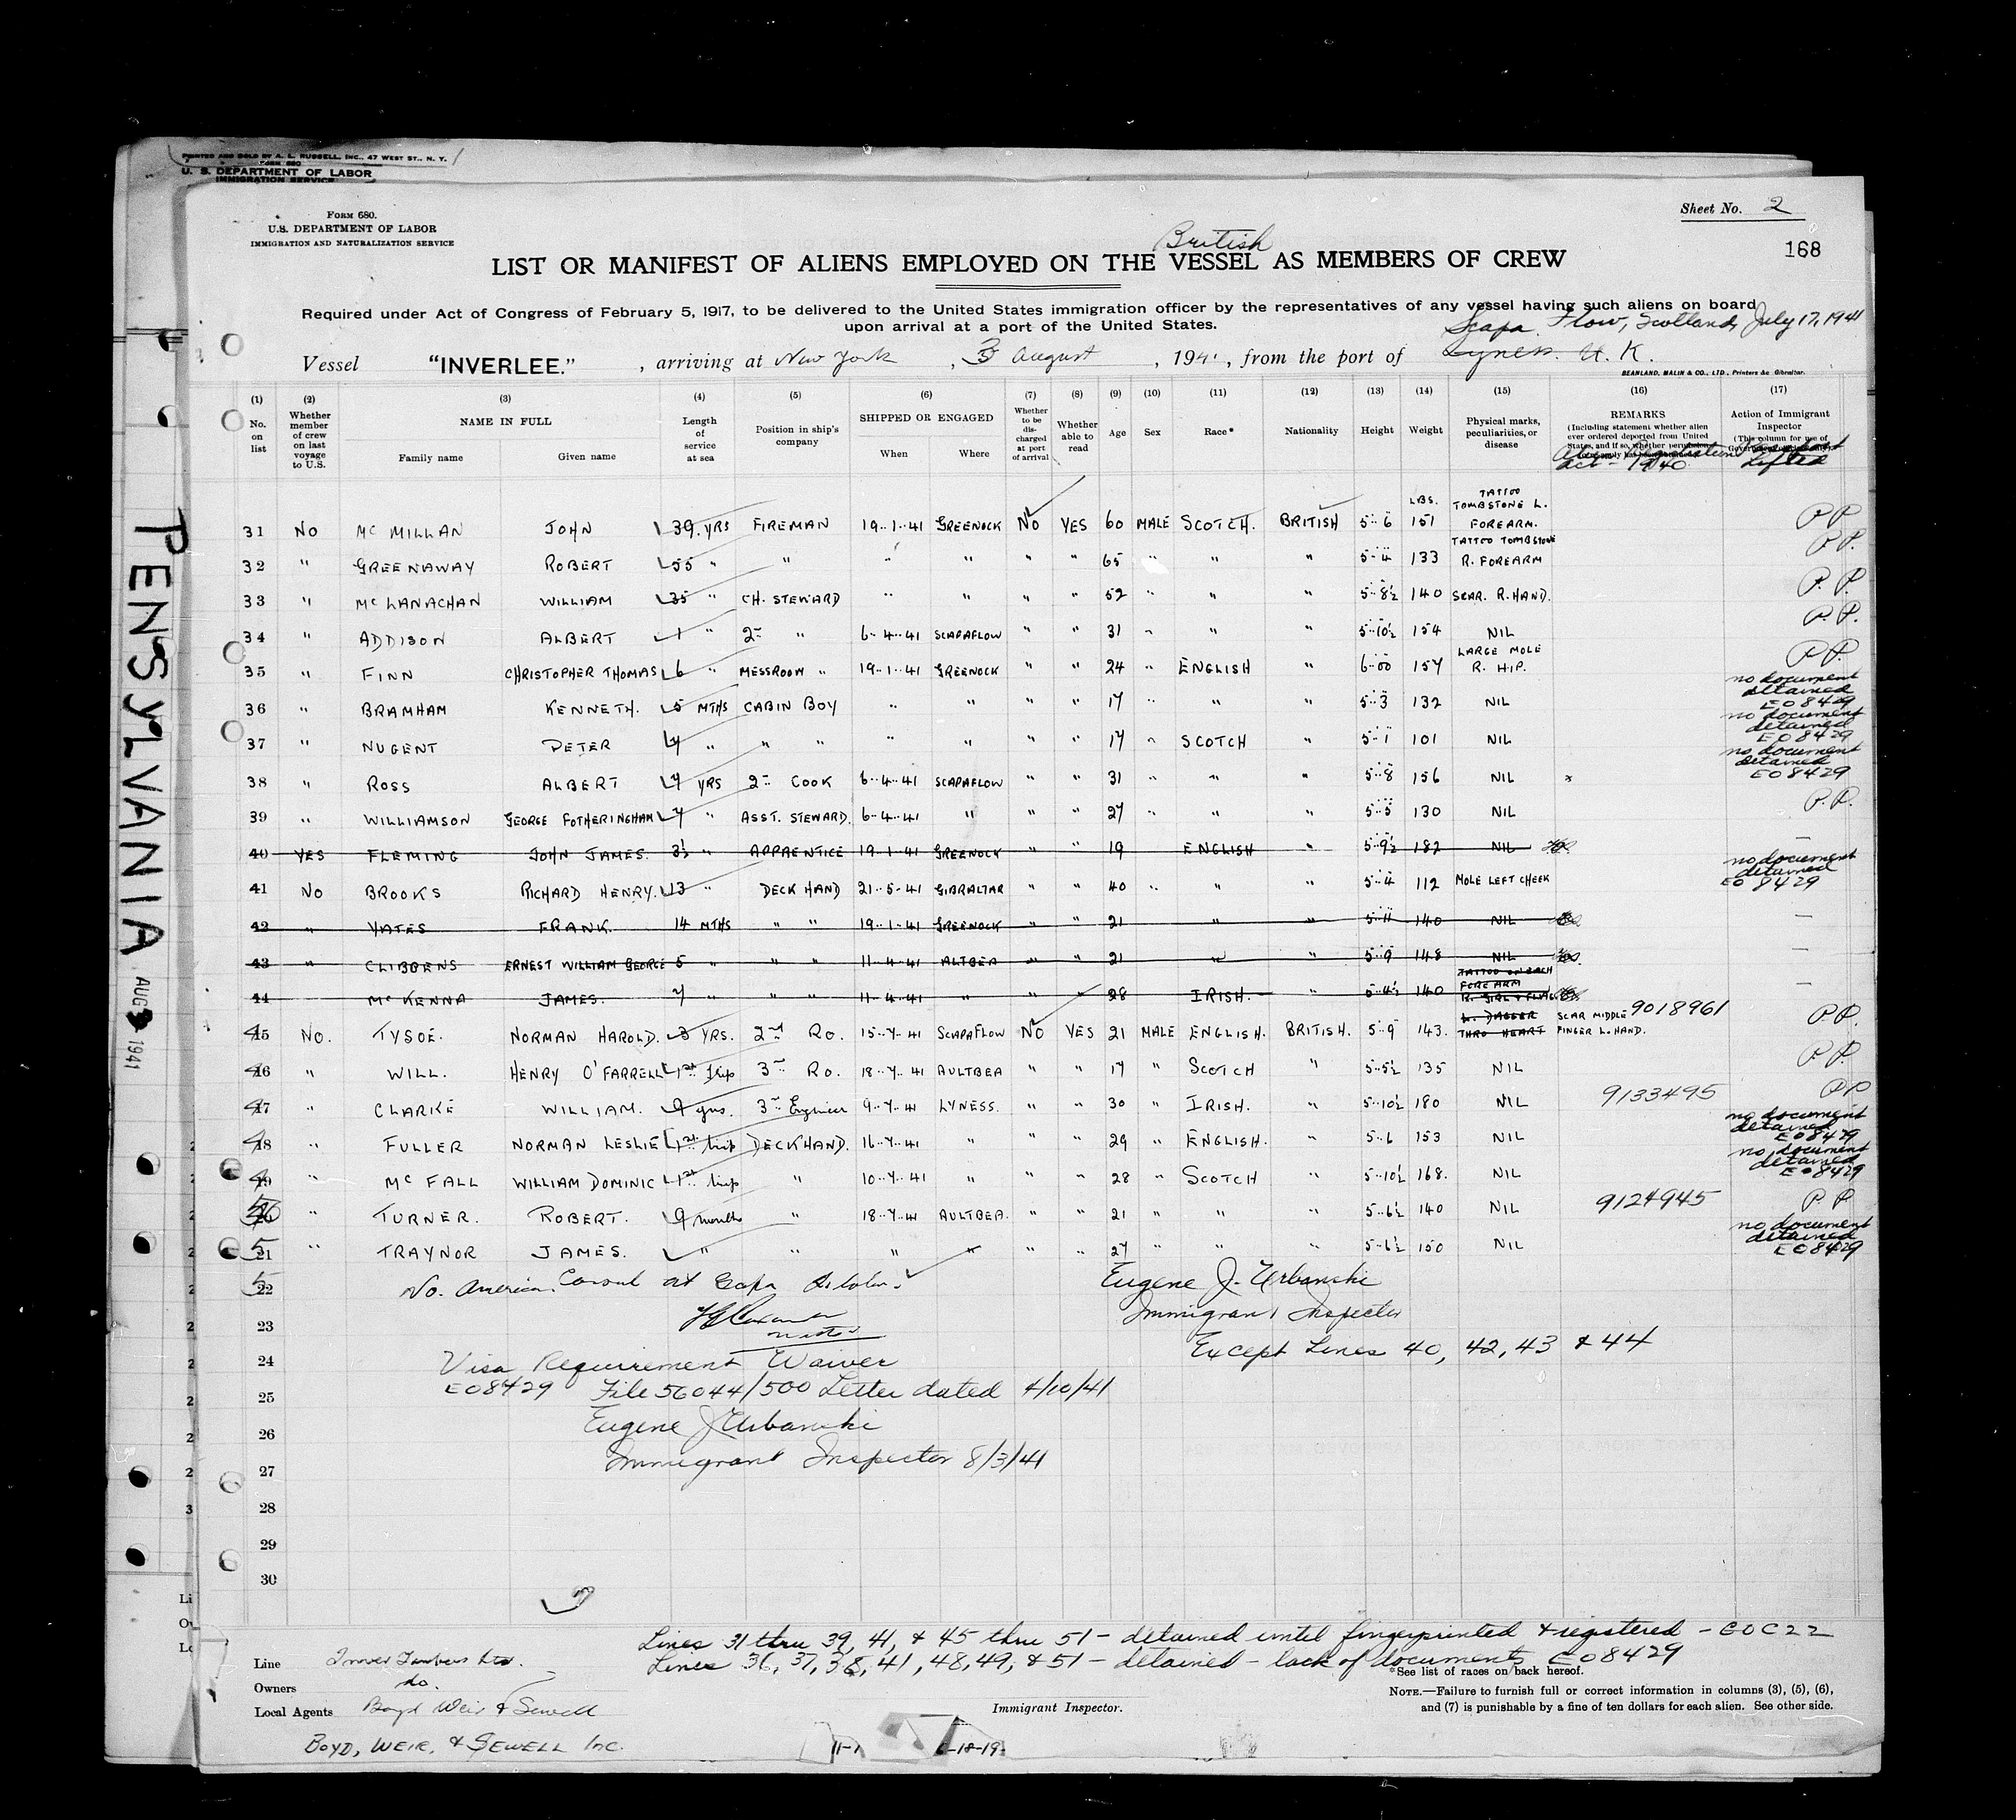 PRINTED AND SOLD BY A. L. RUSSELL, INC., 47 WEST ST., N. Y.
FORM 680
U. S. DEPARTMENT OF LABOR
IMMIGRATION SERVICE
Form 680.
U.S. DEPARTMENT OF LABOR
IMMIGRATION AND NATURALIZATION SERVICE
Sheet No. 2
168
British
LIST OR MANIFEST OF ALIENS EMPLOYED ON THE VESSEL AS MEMBERS OF CREW
Required under Act of Congress of February 5, 1917, to be delivered to the United States immigration officer by the representatives of any vessel having such aliens on board
upon arrival at a port of the United States.
Scapa Flow, Scotland, July 17, 1941
Vessel "INVERLEE." , arriving at New York , 3 August , 1941, from the port of Lyness. U. K.
BEANLAND, MALIN & CO., LTD., Printers &c Gibraltar.
(1) (2) (3) (4) (5) (6) (7) (8) (9) (10) (11) (12) (13) (14) (15) (16) (17)
No. on list
Whether member of crew on last voyage to U.S.
NAME IN FULL
Family name Given name
Length of service at sea
Position in ship's company
SHIPPED OR ENGAGED
When Where
Whether to be discharged at port of arrival
Whether able to read
Age Sex Race* Nationality Height Weight
Physical marks, peculiarities, or disease
REMARKS
(Including statement whether alien ever ordered deported from United States, and if so, whether permission
Action of Immigrant Inspector
(This column for use of
Act - 1940 Lifted
31 No McMILLAN JOHN 39 YRS FIREMAN 19..1..41 GREENOCK No YES 60 MALE SCOTCH. BRITISH 5..6 LBS. 151 TATTOO TOMBSTONE L. FOREARM. P.P.
32 " GREENAWAY ROBERT 55 " " " " " " 65 " " " 5..4 133 TATTOO TOMBSTONE R. FOREARM P.P.
33 " McLANACHAN WILLIAM 35 " CH. STEWARD " " " " 52 " " " 5..8½ 140 SCAR. R. HAND. P.P.
34 " ADDISON ALBERT 1 " 2nd " 6..4..41 SCAPAFLOW " " 31 " " " 5..10½ 154 NIL P.P.
35 " FINN CHRISTOPHER THOMAS 6 " MESSROOM " 19..1..41 GREENOCK " " 24 " ENGLISH " 6..00 157 LARGE MOLE R. HIP. P.P.
36 " BRAMHAM KENNETH. 5 MTHS CABIN BOY " " " " 17 " " " 5..3 132 NIL no document detained EO 8429
37 " NUGENT PETER 7 " " " " " " " 17 " SCOTCH " 5..1 101 NIL no document detained EO 8429
38 " ROSS ALBERT 7 YRS 2nd COOK 6..4..41 SCAPAFLOW " " 31 " " " 5..8 156 NIL no document detained EO 8429
39 " WILLIAMSON GEORGE FOTHERINGHAM 7 " ASST. STEWARD. 6..4..41 " " " 27 " " " 5..5 130 NIL P.P.
40 YES FLEMING JOHN JAMES. 3½ " APPRENTICE 19..1..41 GREENOCK " " 19 ENGLISH " 5..9½ 182 NIL —
41 NO BROOKS RICHARD HENRY. 13 " DECK HAND 21..5..41 GIBRALTAR " " 40 " " " 5..4 112 MOLE LEFT CHEEK no document detained EO 8429
42 " YATES FRANK. 14 MTHS " " 19..1..41 GREENOCK " " 21 " " 5..11 140 NIL —
43 " CLIBBENS ERNEST WILLIAM GEORGE 5 " " " 11..4..41 ALTBEA " " 21 " " 5..9 148 NIL —
44 McKENNA JAMES. 7 " " " 11..4..41 " " " 28 IRISH. " 5..4½ 140 TATTOO ON EACH FOREARM R. GIRL & FLAG L. DAGGER THRO HEART —
45 No. TYSOE. NORMAN HAROLD. 3 YRS. 2nd Ro. 15..7..41 SCAPAFLOW No YES 21 MALE ENGLISH. BRITISH. 5..9 143. SCAR MIDDLE FINGER L. HAND. 9018961 P.P.
46 " WILL. HENRY O'FARRELL 1st trip 3rd Ro. 18..7..41 AULTBEA " " 17 " SCOTCH " 5..5½ 135 NIL P.P.
47 " CLARKE WILLIAM. 9 yrs. 3rd Engineer 9..7..41 LYNESS. " " 30 " IRISH. " 5..10½ 180 NIL 9133495 P.P.
48 " FULLER NORMAN LESLIE 1st trip DECKHAND. 16..7..41 " " " 29 " ENGLISH. " 5..6 153 NIL no document detained EO 8429
49 " McFALL WILLIAM DOMINIC 1st trip " 10..7..41 " " " 28 " SCOTCH " 5..10½ 168. NIL no document detained EO 8429
50 " TURNER. ROBERT. 9 months " 18..7..41 AULTBEA. " " 21 " " " 5..6½ 140 NIL 9124945 P.P.
51 " TRAYNOR JAMES. " " " " " " 27 " " " 5..6½ 150 NIL no document detained EO 8429
52 No. American Consul at Scapa Eugene J. Urbanski
23 Master Immigrant Inspector
24 Visa Requirement Waiver Except Lines 40, 42, 43 & 44
25 EO 8429 File 56044/500 Letter dated 4/10/41
26 Eugene J Urbanski
27 Immigrant Inspector 8/3/41
28
29
30
Lines 31 thru 39, 41, & 45 thru 51 - detained until fingerprinted & registered - EOC22
Lines 36, 37, 38, 41, 48, 49, & 51 - detained - lack of documents EO 8429
Line Inver Tankers Ltd.
Owners do.
Local Agents Boyd Weir & Sewell
BOYD, WEIR, & SEWELL INC.
Immigrant Inspector.
*See list of races on back hereof.
NOTE.—Failure to furnish full or correct information in columns (3), (5), (6),
and (7) is punishable by a fine of ten dollars for each alien. See other side.
PENSYLVANIA AUG 3 1941